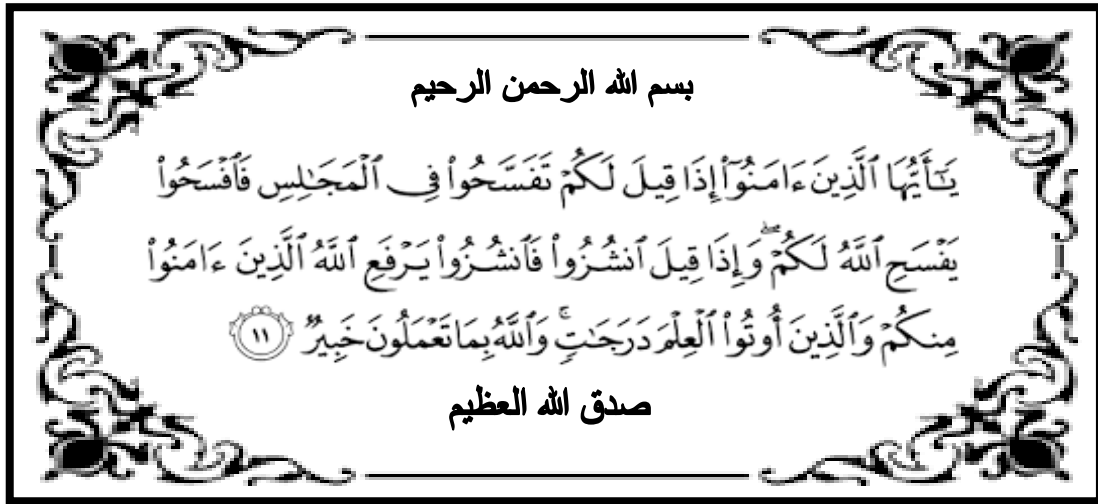 بسم الله الرحمن الرحيم
يَٰٓأَيُّهَا ٱلَّذِينَ ءَامَنُوٓا۟ إِذَا قِيلَ لَكُمْ تَفَسَّحُوا۟ فِى ٱلْمَجَٰلِسِ فَٱفْسَحُوا۟
يَفْسَحِ ٱللَّهُ لَكُمْ ۖ وَإِذَا قِيلَ ٱنشُزُوا۟ فَٱنشُزُوا۟ يَرْفَعِ ٱللَّهُ ٱلَّذِينَ ءَامَنُوا۟
مِنكُمْ وَٱلَّذِينَ أُوتُوا۟ ٱلْعِلْمَ دَرَجَٰتٍ ۚ وَٱللَّهُ بِمَا تَعْمَلُونَ خَبِيرٌ ١١
صدق الله العظيم